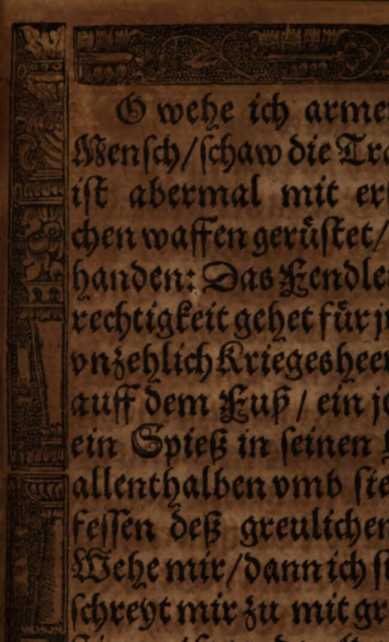 O wehe ich arme
Mensch/schaw die Tra
ist abermal mit er
chen waffen gerüstet/
handen: Das Fendle
rechtigkeit gehet für j
vnzehlich Kriegesheer
auff dem Fuß / ein j
ein Spieß in seinen
allenthalben vmb sie
fessen deß greulichen
Wehe mir/dann ich s
schreyt mir zu mit gr